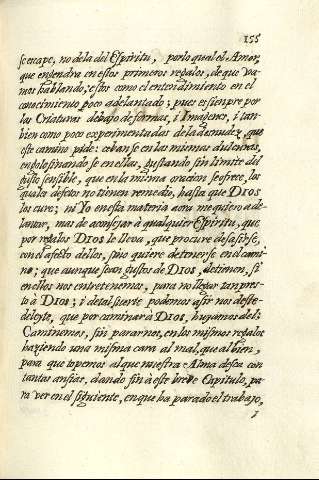 155
se escape, no de la del Espiritu, por lo qual el Amor,
que engendra en estos primeros regalos, de que va-
mos hablando, estos como el entendimiento en el
conocimiento poco adelantado; pues es siempre por
las Criaturas debajo de formas, i Imagenes, i tan-
bien como poco experimentados de la desnudez, que
este camino pide: ceban se en las mismas dulcuras,
engolosinando se en ellas, gustando sin limite del
gusto sensible, que en la misma oracion se ofrece, los
quales defetos no tienen remedio, hasta que DIOS
los cure; ni Yo en esta materia aora me quiero a de-
lantar, mas de aconsejar à qualquier Espiritu, que
por regalos DIOS le lleva, que procure desasirse,
con el afecto dellos, sino quiere detenerse en el cami-
no; que aunque sean gustos de DIOS, detienen, si
en ellos nos entretenemos, para no llegar tan pres-
to à DIOS; i de tal suerte podemos asir nos deste
deleyte, que por caminar à DIOS, huyamos del:
Caminemos, sin pararnos, en los mismos regalos
haziendo una misma cara al mal, que al bien,
para que topemos al que nuestra Alma desea con
tantas ansias, dando fin à este breve Capitulo, pa-
ra ver en el siguiente, en que ha parado el trabajo,
i